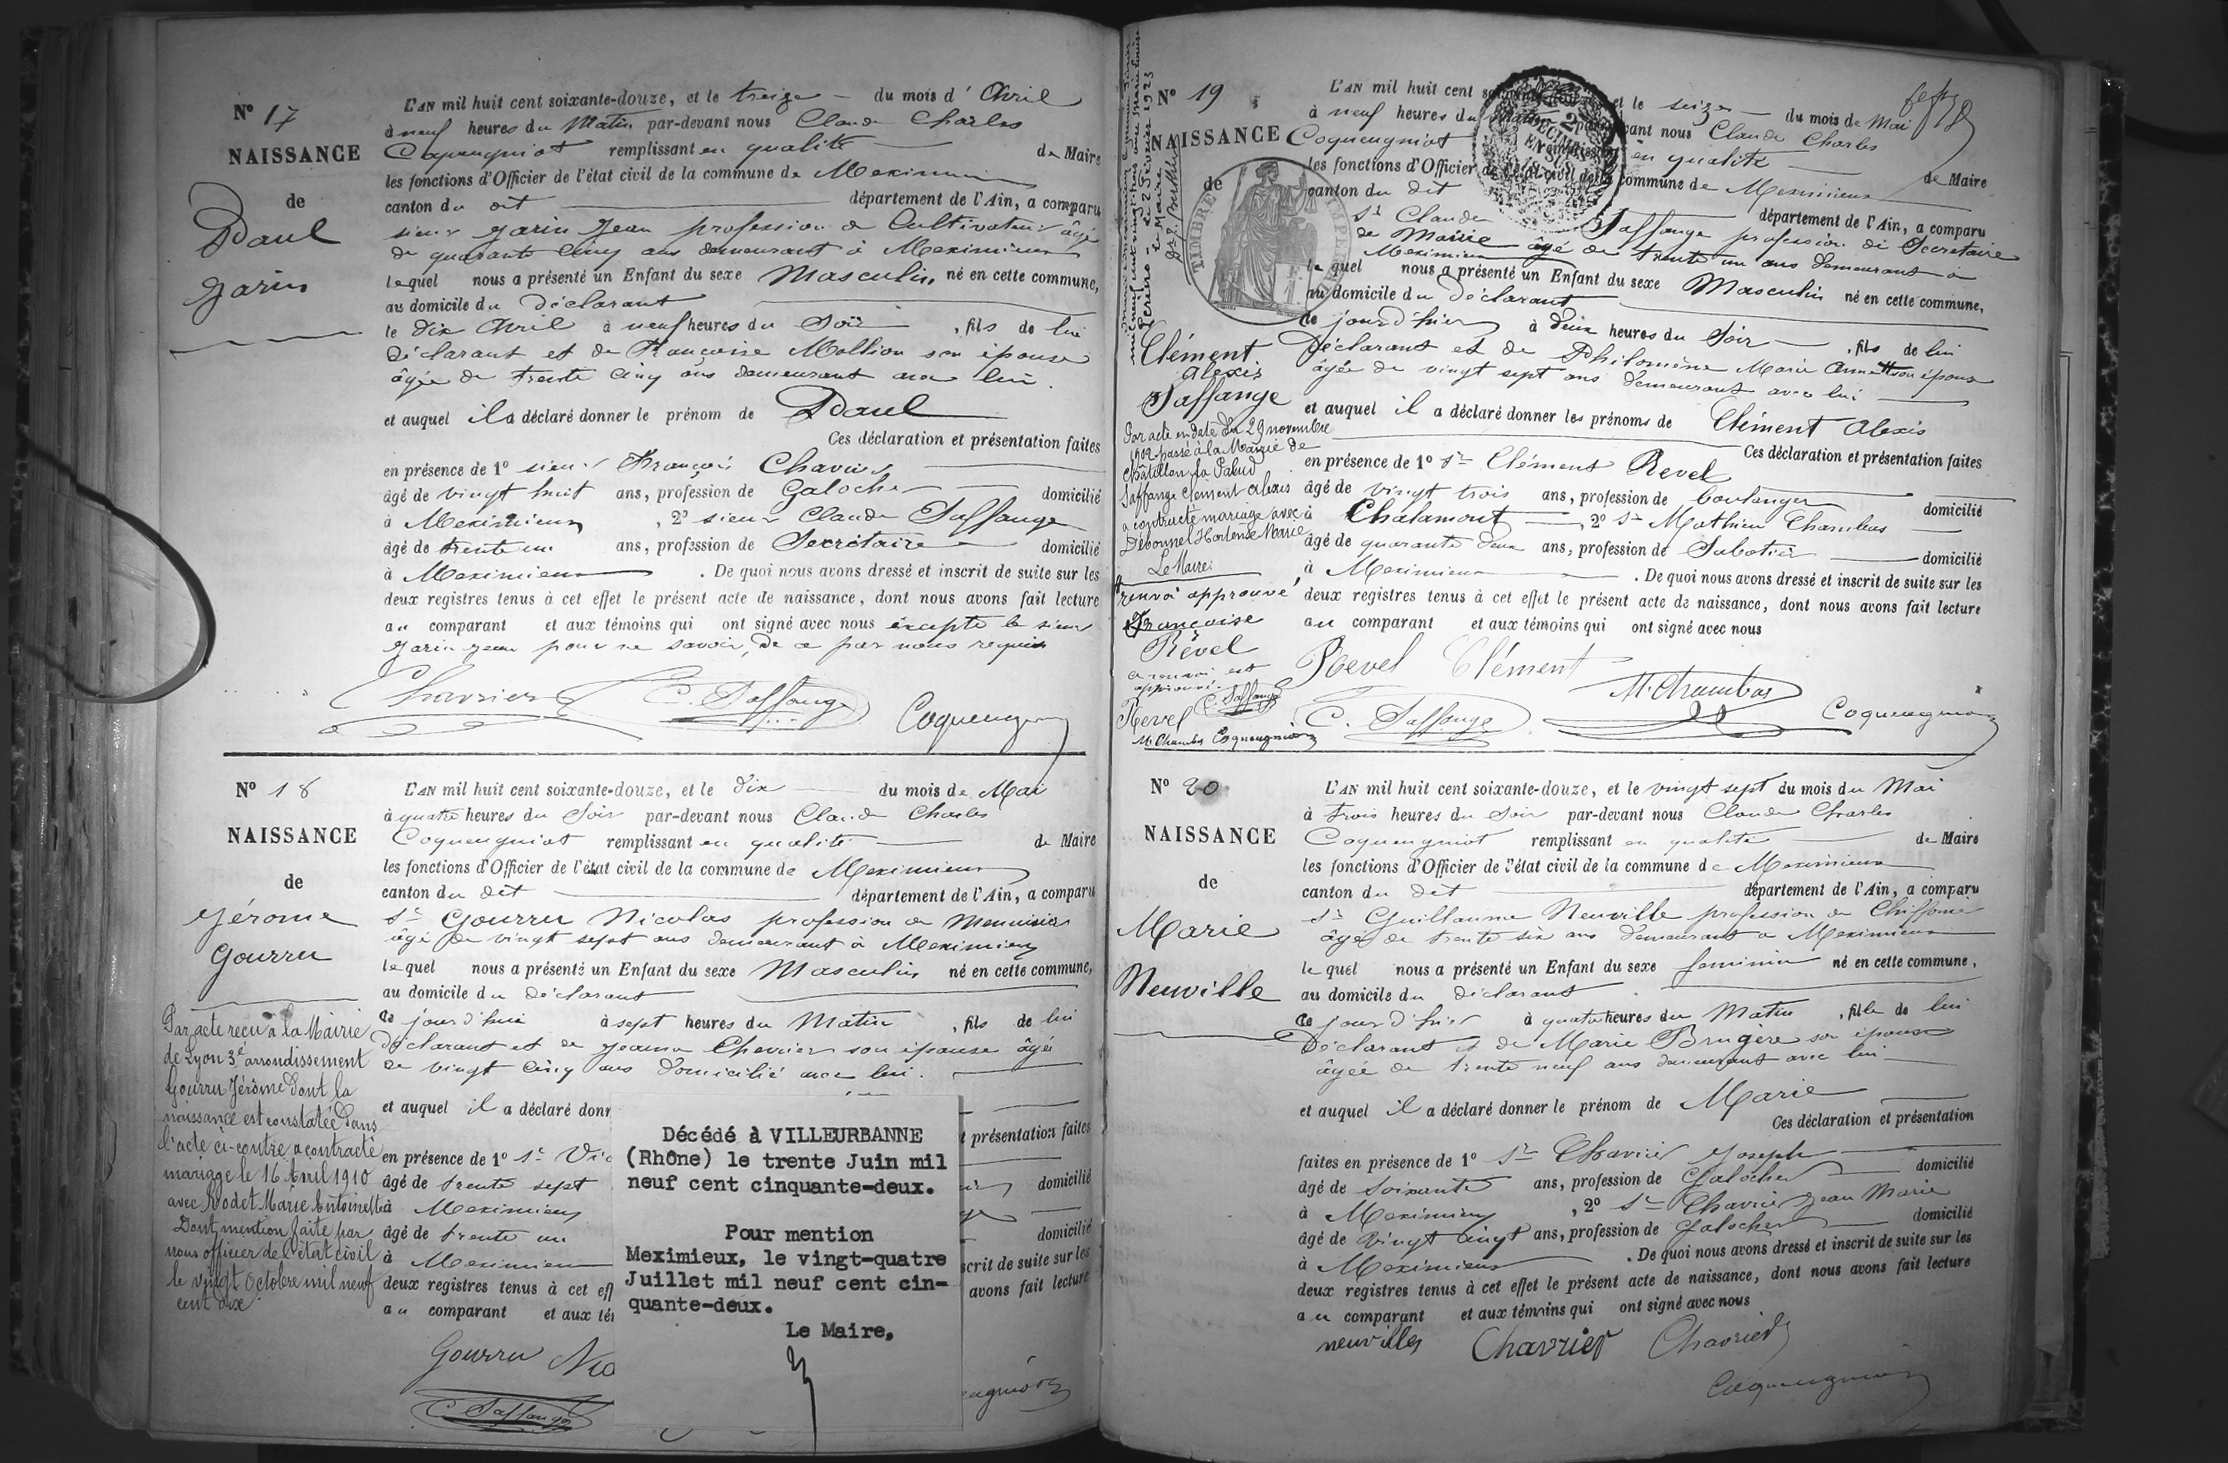 N° 17
NAISSANCE
de
Paul
Garin
L'AN mil huit cent soixante-douze, et le treize du mois d' Avril
à neuf heures du Matin par-devant nous Claude Charles
Coqueugniot remplissant en qualité de Maire
les fonctions d'Officier de l'état civil de la commune de Meximieux
canton du dit département de l'Ain, a comparu
sieur Garin Jean profession de Cultivateur âgé
de quarante cinq ans demeurant à Meximieux
lequel nous a présenté un Enfant du sexe Masculin, né en cette commune,
au domicile du déclarant
le dix Avril à neuf heures du Soir, fils de lui
déclarant et de Françoise Mollion son épouse
âgée de trente cinq ans demeurant avec lui.
et auquel il a déclaré donner le prénom de Paul
Ces déclaration et présentation faites
en présence de 1° sieur François Chavrier
âgé de vingt huit ans, profession de Galocher domicilié
à Meximieux, 2° sieur Claude Saffange
âgé de trente un ans, profession de Secrétaire domicilié
à Meximieux. De quoi nous avons dressé et inscrit de suite sur les
deux registres tenus à cet effet le présent acte de naissance, dont nous avons fait lecture
au comparant et aux témoins qui ont signé avec nous excepté le sieur
Garin Jean pour ne savoir, de ce par nous requis
Chavrier C. Saffange Coqueugniot
N° 18
NAISSANCE
de
Jérome
Gourru
Par acte reçu à la Mairie
de Lyon 3e arrondissement
Gourru Jérôme dont la
naissance est constatée dans
l'acte ci-contre a contracté
mariage le 16 Avril 1910
avec Rodet Marie Antoinette
Dont mention faite par
nous officier de l'état civil
le vingt Octobre mil neuf
cent dix
L'AN mil huit cent soixante-douze, et le dix du mois de Mai
à quatre heures du Soir par-devant nous Claude Charles
Coqueugniot remplissant en qualité de Maire
les fonctions d'Officier de l'état civil de la commune de Meximieux
canton du dit département de l'Ain, a comparu
Sr Gourru Nicolas profession de Menuisier
âgé de vingt sept ans demeurant à Meximieux
lequel nous a présenté un Enfant du sexe Masculin né en cette commune,
au domicile du déclarant
ce jourd'hui à sept heures du Matin, fils de lui
déclarant et de Jeanne Chevrier son épouse âgée
de vingt cinq ans domicilié avec lui.
et auquel il a déclaré donn
présentation faites
en présence de 1° Sr Vic
âgé de trente sept domicilié
à Meximieux
âgé de trente un domicilié
à Meximieux scrit de suite sur les
deux registres tenus à cet eff avons fait lecture
au comparant et aux tém
Gourru Nic
C. Saffange
Décédé à VILLEURBANNE
(Rhône) le trente Juin mil
neuf cent cinquante-deux.
Pour mention
Meximieux, le vingt-quatre
Juillet mil neuf cent cin-
quante-deux.
Le Maire,
N° 19
NAISSANCE
de
TIMBRE IMPERIAL
2 DÉCIMES EN SUS
Clément
Alexis
Saffange
Par acte en date du 29 novembre
1902 passé à la Mairie de
Châtillon la Palud
Saffange Clément Alexis
a contracté mariage avec
Débonnel Hortense Marie
Le Maire:
renvoi approuvé
Françoise
Revel
ce renvoi est
approuvé.
Revel C. Saffange
M. Chambas Coqueugniot
L'AN mil huit cent soixante-douze, et le seize du mois de Mai
à neuf heures du Matin par-devant nous Claude Charles
Coqueugniot remplissant en qualité de Maire
les fonctions d'Officier de l'état civil de la commune de Meximieux
canton du dit département de l'Ain, a comparu
Sr Claude Saffange profession de Secrétaire
de Mairie âgé de trente un ans demeurant à
Meximieux
lequel nous a présenté un Enfant du sexe Masculin né en cette commune,
au domicile du déclarant
le jour d'hier à deux heures du Soir, fils de lui
déclarant et de Philomène Marie Annette son épouse
âgée de vingt sept ans demeurant avec lui
et auquel il a déclaré donner les prénoms de Clément Alexis
Ces déclaration et présentation faites
en présence de 1° Sr Clément Revel
âgé de vingt trois ans, profession de boulanger domicilié
à Chalamont, 2° Sr Mathieu Chambas
âgé de quarante deux ans, profession de Sabotier domicilié
à Meximieux. De quoi nous avons dressé et inscrit de suite sur les
deux registres tenus à cet effet le présent acte de naissance, dont nous avons fait lecture
au comparant et aux témoins qui ont signé avec nous
Revel Clément M. Chambas
C. Saffange Coqueugniot
N° 20
NAISSANCE
de
Marie
Neuville
L'AN mil huit cent soixante-douze, et le vingt sept du mois du Mai
à trois heures du Soir par-devant nous Claude Charles
Coqueugniot remplissant en qualité de Maire
les fonctions d'Officier de l'état civil de la commune de Meximieux
canton du dit département de l'Ain, a comparu
Sr Guillaume Neuville profession de Chiffonier
âgé de trente six ans demeurant à Meximieux
lequel nous a présenté un Enfant du sexe féminin né en cette commune,
au domicile du déclarant
le jour d'hier à quatre heures du Matin, fille de lui
déclarant et de Marie Brugère son épouse
âgée de trente neuf ans demeurant avec lui
et auquel il a déclaré donner le prénom de Marie
Ces déclaration et présentation
faites en présence de 1° Sr Chavrier Joseph
âgé de soixante ans, profession de Galocher domicilié
à Meximieux, 2° Sr Chavrier Jean Marie
âgé de vingt cinq ans, profession de Galocher domicilié
à Meximieux. De quoi nous avons dressé et inscrit de suite sur les
deux registres tenus à cet effet le présent acte de naissance, dont nous avons fait lecture
au comparant et aux témoins qui ont signé avec nous
neuvilles Chavrier Chavrier
Coqueugniot